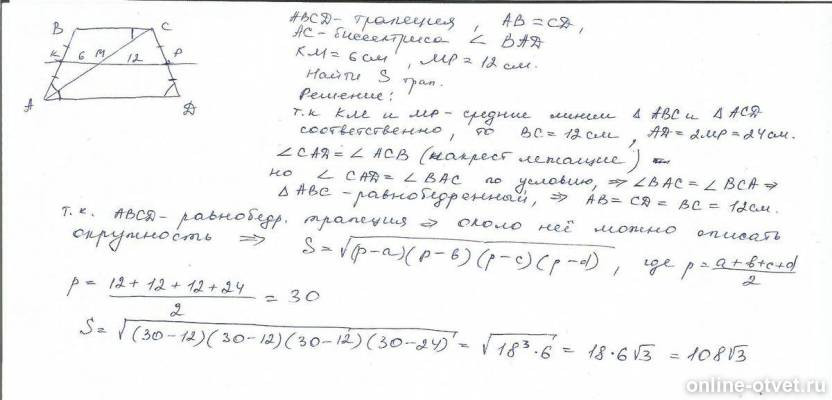 B C
K 6 M 12 P
A D
ABCD - трапеция, AB = CD,
AC - биссектриса ∠ BAD
KM = 6 см, MP = 12 см.
Найти S трап.
Решение:
т.к KM и MP - средние линии Δ ABC и Δ ACD
соответственно, то BC = 12 см, AD = 2MP = 24 см.
∠CAD = ∠ACB (накрест лежащие)
но ∠ CAD = ∠ BAC по условию, ⇒ ∠BAC = ∠BCA ⇒
Δ ABC - равнобедренный, ⇒ AB = CD = BC = 12 см.
т.к. ABCD - равнобедр. трапеция ⇒ около неё можно описать
окружность ⇒ S = √(p-a)(p-b)(p-c)(p-d), где p = a+b+c+d/2
p = 12+12+12+24/2 = 30
S = √(30-12)(30-12)(30-12)(30-24) = √18³·6 = 18·6√3 = 108√3
online-otvet.ru